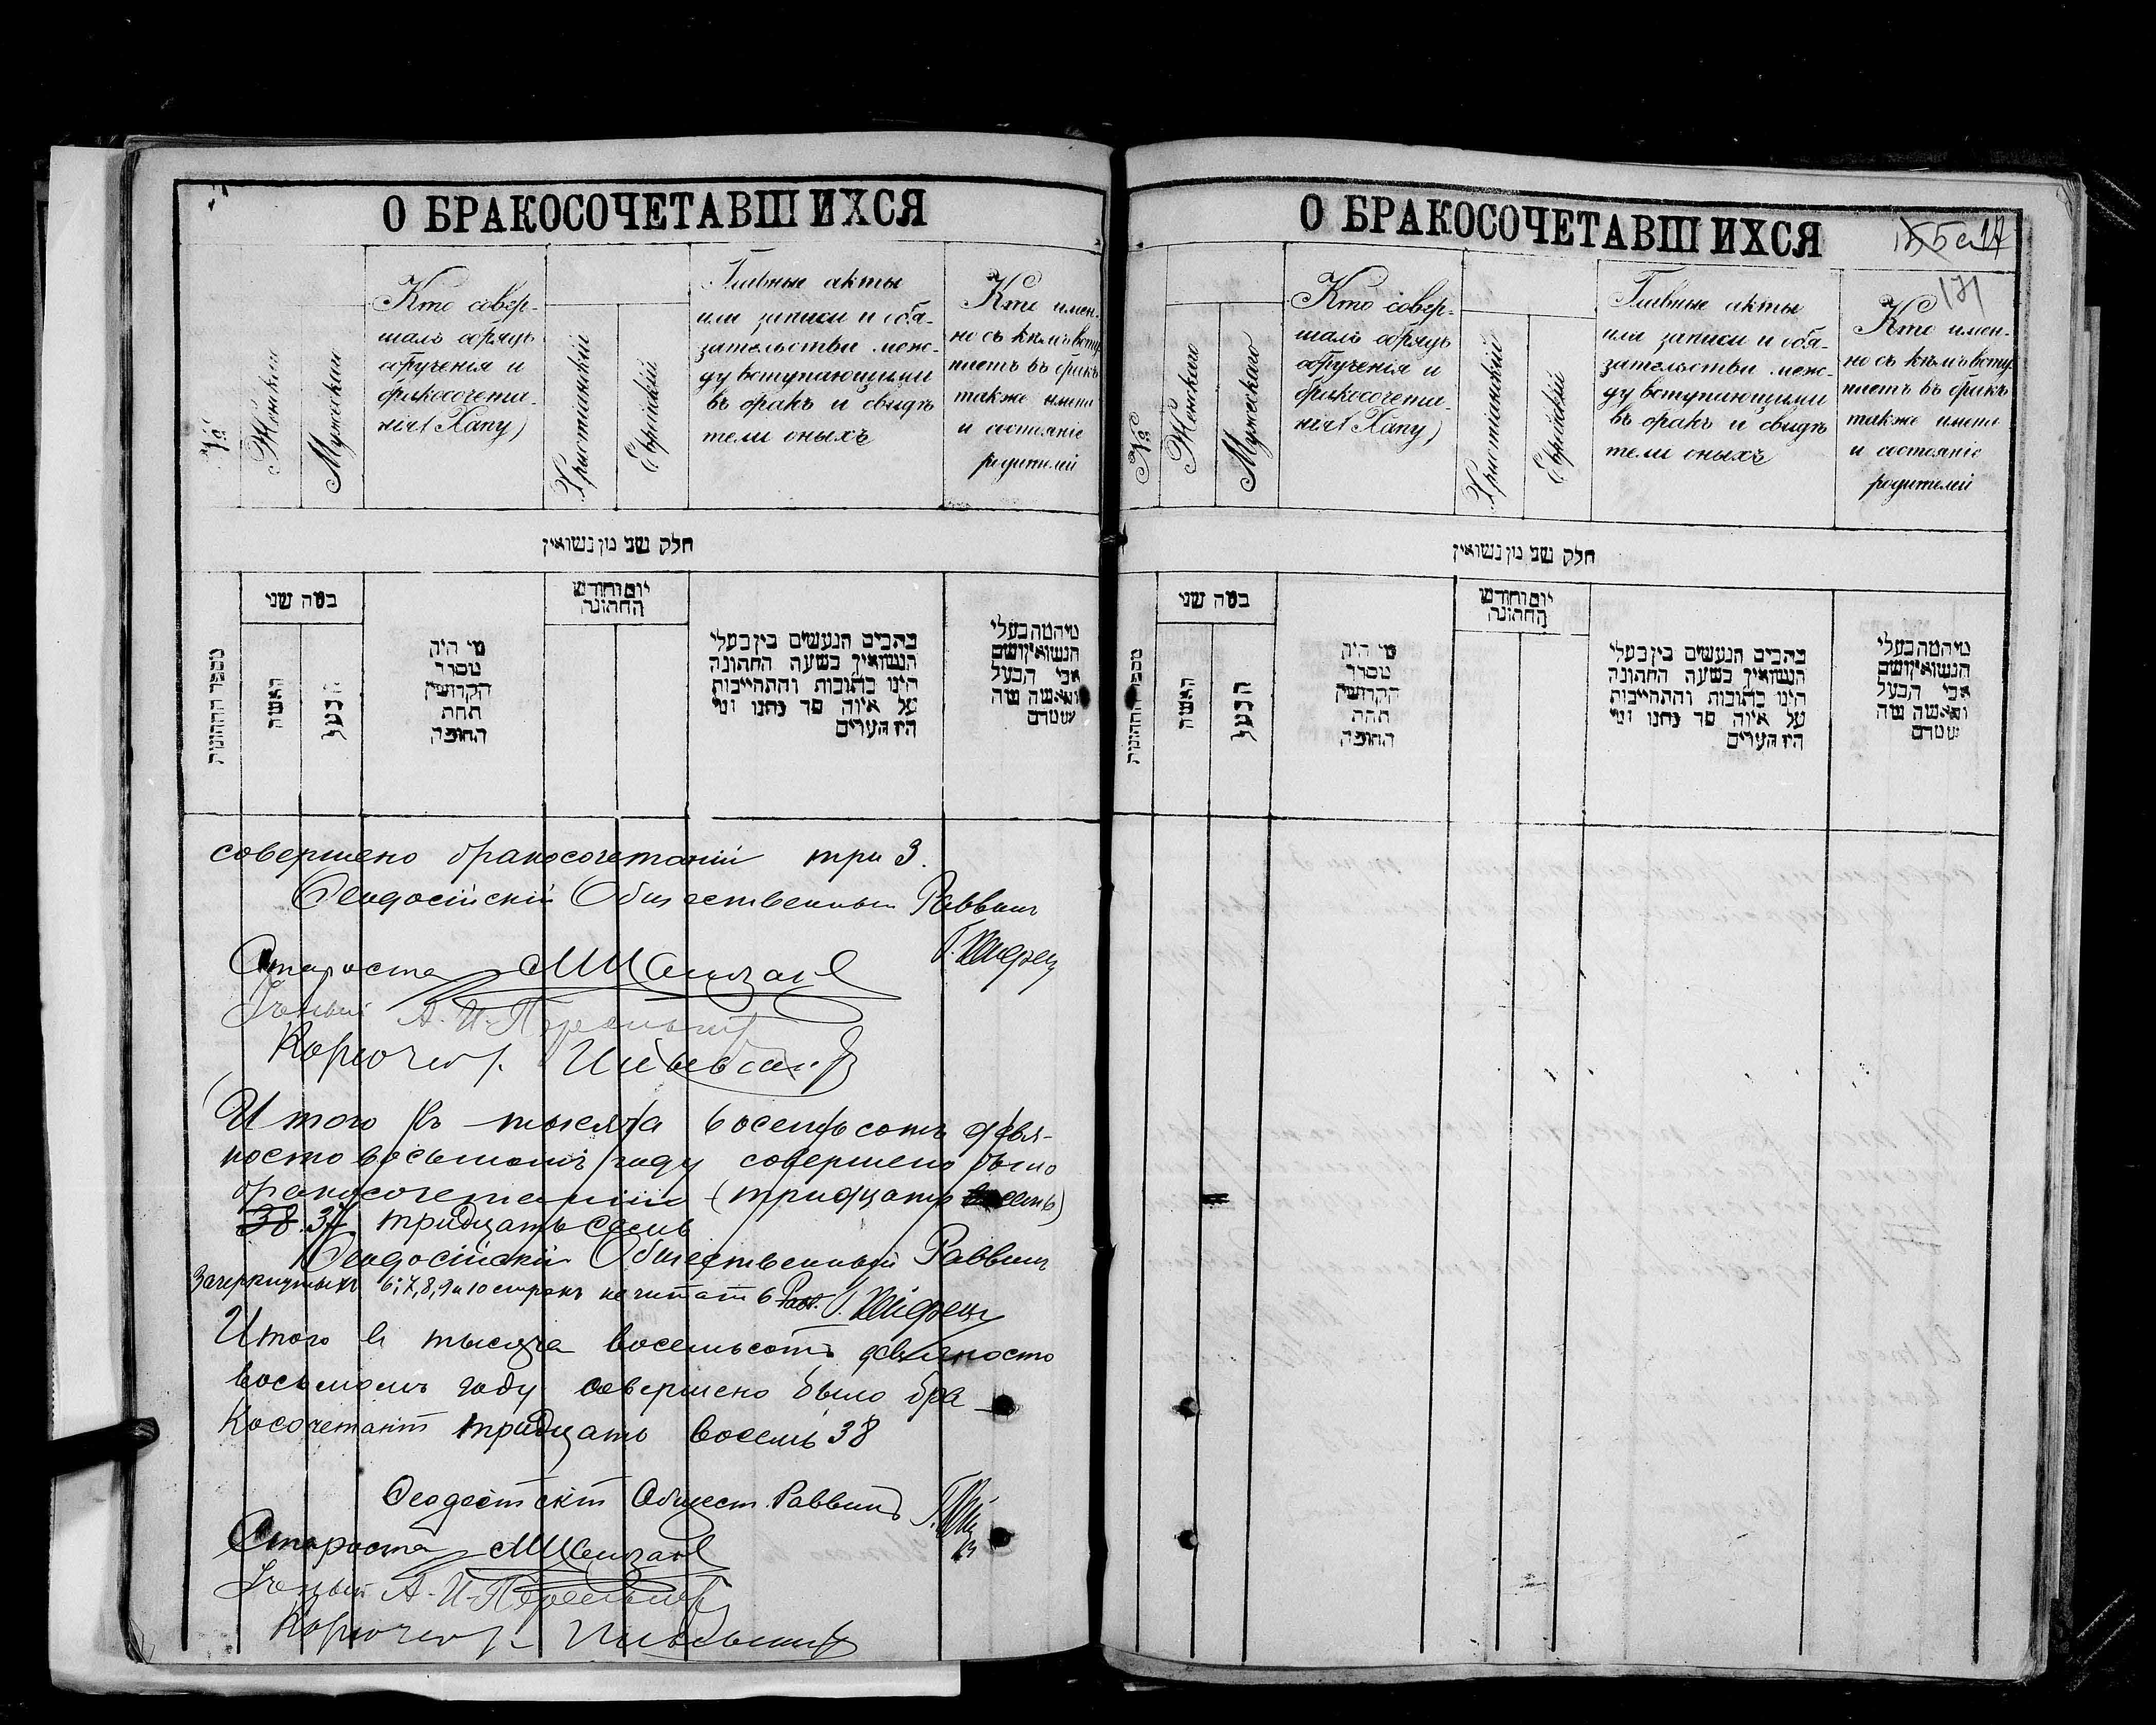 О БРАКОСОЧЕТАВШИХСЯ
№
Женскаго
Мужескаго
Кто совер-
шалъ обрядъ
обрученія и
бракосочета-
нія (Хапу)
Христіанскій
Еврейскій
Главные акты
или записи и обя-
зательства меж-
ду вступающими
въ бракъ и свидѣ
тели оныхъ
Кто имен-
но съ кѣмъ всту
паетъ въ бракъ
также имена
и состояніе
родителей
חלק שני מן נשואין
מספר החתונות
כמה שני
האשה
הבעל
מי היה
מסדר
הקדושין
תחת
החופה
יום וחודש
החתונה
כתבים הנעשים בין בעלי
הנשואין בשעה החתונה
היינו כתובות והתחייבות
על איזה סך נתנו ומי
היו העדים
מי המה בעלי
הנשואין ושם
אבי הבעל
והאשה מה
שמדם
совершено бракосочетаній три 3.
Ѳеодосійскій Общественный Раввинъ
Староста
Ученый А. И.
Итого въ тысяча восемьсотъ девя-
носто восьмомъ году совершено было
бракосочетаній (тридцать восемь)
38. 37 тридцать семь
Ѳеодосійскій Общественный Раввинъ
Зачеркнутыхъ 6, 7, 8, 9 и 10 строкъ не читать Рав.
Итого въ тысяча восемьсотъ девяносто
восьмомъ году совершено было бра
косочетаній тридцать восемь 38
Ѳеодосійскій Общест. Раввинъ
Староста
Ученый А. И.
О БРАКОСОЧЕТАВШИХСЯ
171
№
Женскаго
Мужескаго
Кто совер-
шалъ обрядъ
обрученія и
бракосочета-
нія (Хапу)
Христіанскій
Еврейскій
Главные акты
или записи и обя-
зательства меж-
ду вступающими
въ бракъ и свидѣ
тели оныхъ
Кто имен-
но съ кѣмъ всту
паетъ въ бракъ
также имена
и состояніе
родителей
חלק שני מן נשואין
מספר החתונות
כמה שני
האשה
הבעל
מי היה
מסדר
הקדושין
תחת
החופה
יום וחודש
החתונה
כתבים הנעשים בין בעלי
הנשואין בשעה החתונה
היינו כתובות והתחייבות
על איזה סך נתנו ומי
היו העדים
מי המה בעלי
הנשואין ושם
אבי הבעל
והאשה מה
שמדם